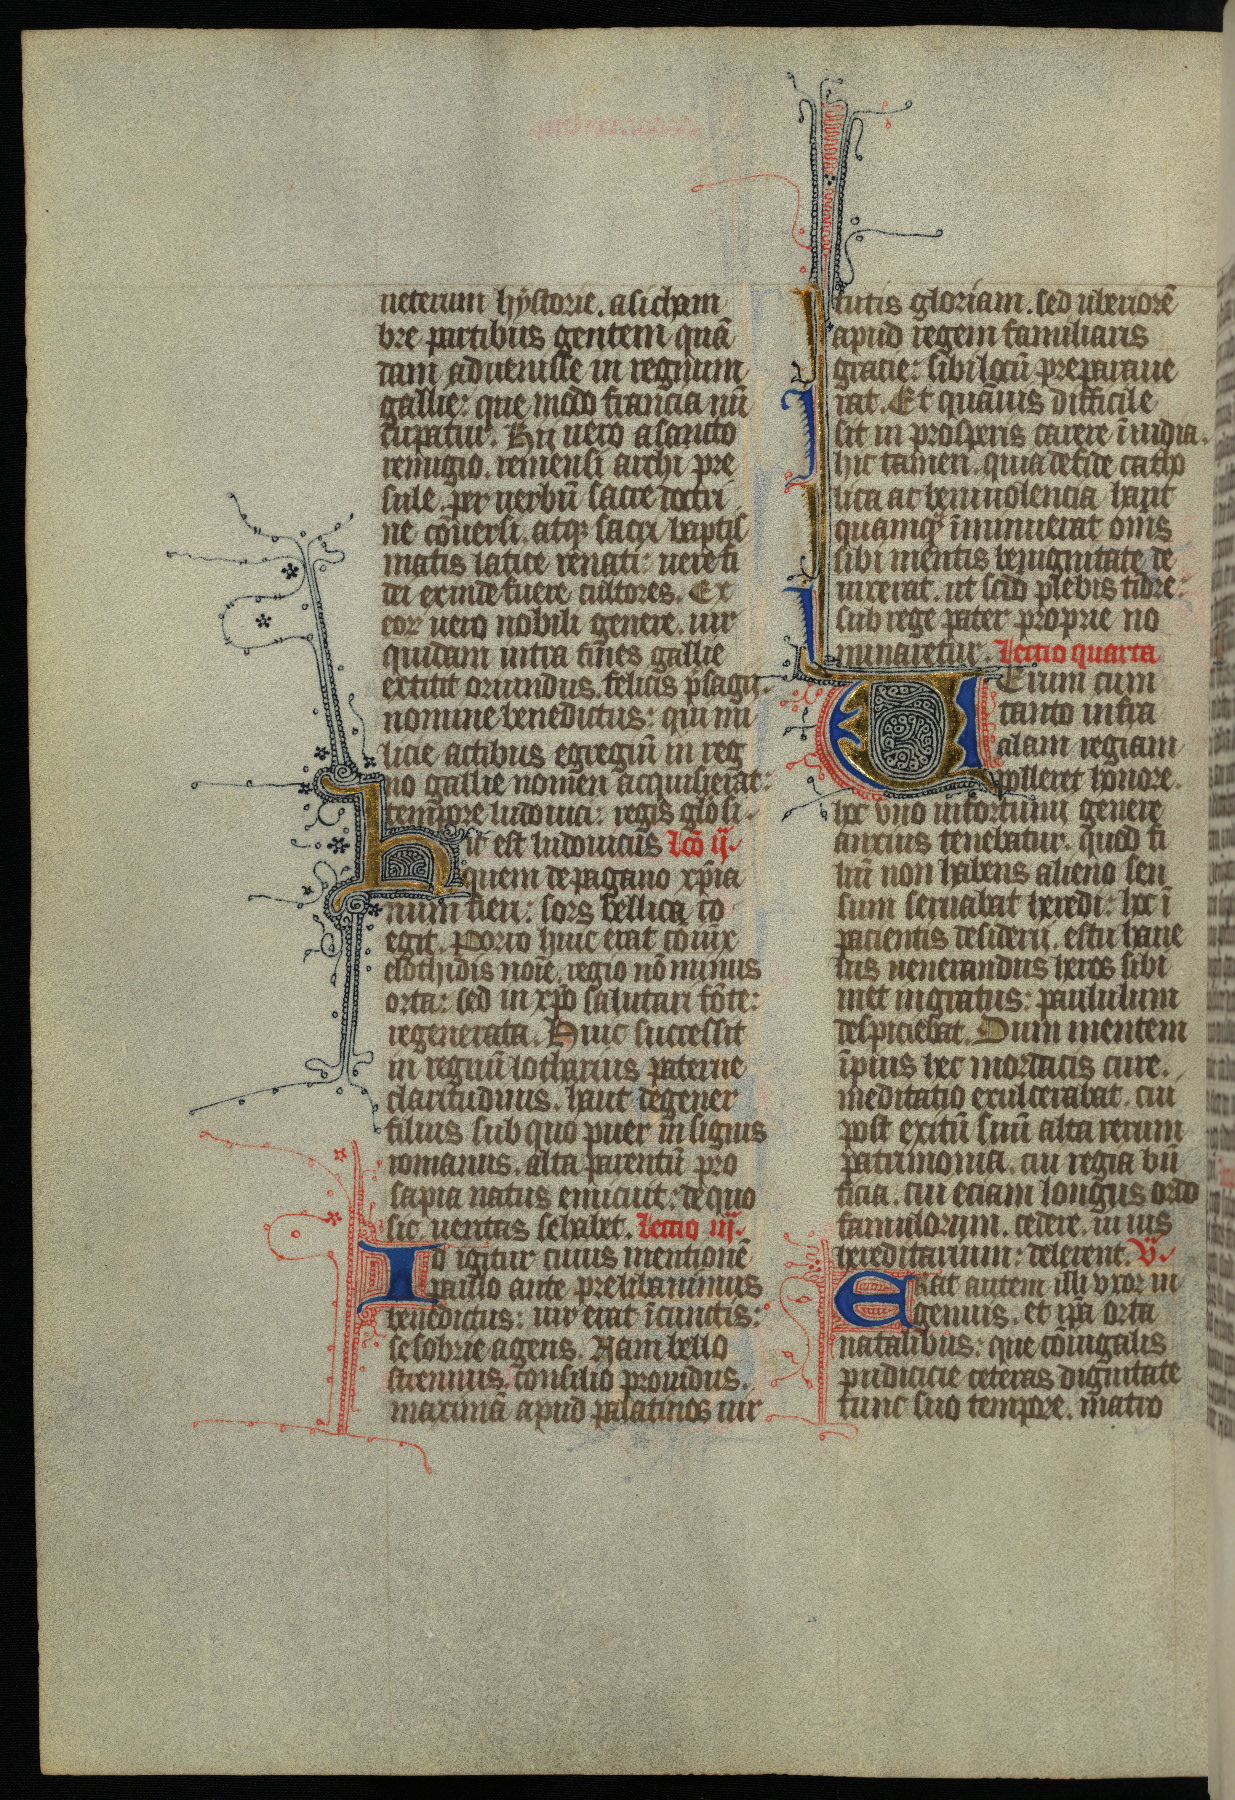 ueterum hystorie. a sicham
bre partibus gentem quā
dam aduenisse in regnum
gallie: que modo francia nū
cupatur. Hii uero a sancto
remigio. remensi archi pre
sule. per uerbū sacre doctri
ne cōuersi. atq; sacri baptis
matis latice renati: uere fi
dei exinde fuere cultores. Ex
eor uero nobili genere. uir
quidam intra fines gallie
extitit oriundus. felicis p̄sagii.
nomine benedictus: qui mi
licie actibus egregiū in reg
no gallie nomen acquisierat:
tempore ludouici: regis glosi.
Hic est ludouicus Lcō ij
quem de pagano xp̄ia
num fieri: sors bellica co
egit. Porro huic erat coniux
elothidis noīe. regio nō minus
orta: sed in xp̄o salutari fōte:
regenerata. Huic successit
in regnū lotharius paterne
claritudinis. haut degener
filius sub quo puer insignis
romanus. alta parentū pro
sapia natus emicuit: de quo
sic ueritas se habet. Lectio iij.
Is igitur cuius mentionē
paulo ante prelibauimus
benedictus: uir erat ī cunctis:
se sobrie agens. Nam bello
strenuus. consilio prouidus.
maximā apud palatinos uir
tutis gloriam. sed uberiorē
apud regem familiaris
gratie: sibi locū preparaue
rat. Et quāuis difficile
sit in prosperis carere īuidia.
hic tamen. quia de fide catho
lica ac beniuolencia haut
quamq̄ īminuerat om̄s
sibi mentis benignitate de
uixerat. ut sc̄do plebis fidere:
sub rege pater proprie no
minaretur. Lectio quarta
Uerum cum
tanto infra
alam regiam
polleret honore.
hoc uno infortunii genere
anxius tenebatur. quod fi
liū non habens alieno sen
sum seruabat heredi: hec ī
pacientis desiderii. estu hane
lus uenerandus heros sibi
met ingratus: paululum
despiciebat. Dum mentem
īpius hec mordacis cure.
meditatio exulcerabat. cui
post exitū suū alta rerum
patrimonia. cui regia bn̄
ficia. cui eciam longus ordo
famulorum. cedere. in ius
hereditarium: deberent. V.
Erat autem illi uxor in
genuis. et ip̄a orta
natalibus: que cōiugalis
pudicicie ceteras dignitate
tunc suo tempore. matro